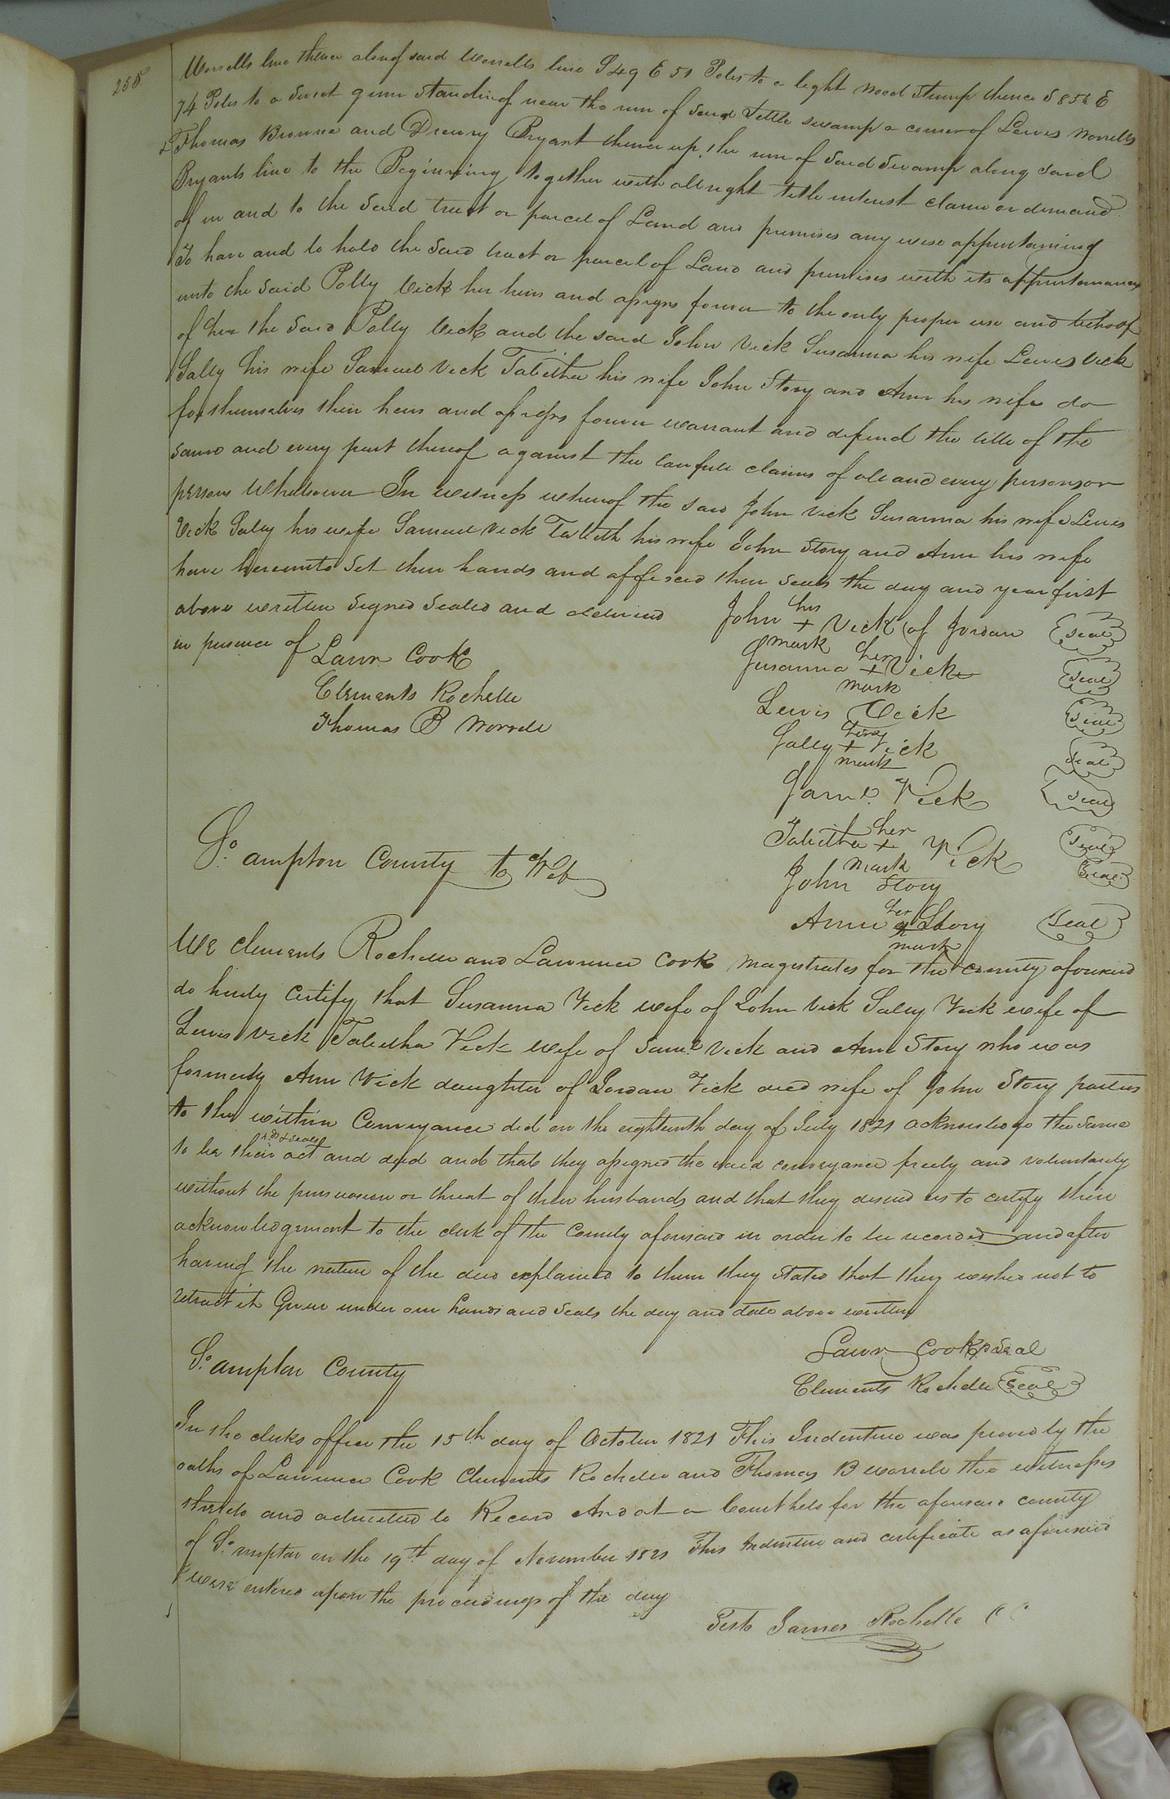 255
Worrells line thence along said Worrells line S 49 E 51 Poles to a light wood Stump thence S 85½ E
74 Poles to a Sweet gum Standing near the run of said Tittle swamp a corner of Lewis Worrells
Thomas Browne and Drewry Bryant thence up the run of said Swamp along said
Bryants line to the Beginning together with all right title interest claim or demand
of in and to the said tract or parcel of Land and premises any wise appertaining
To have and to hold the said tract or parcel of Land and premises with its appurtenances
unto the said Polly Vick her heirs and assigns forever to the only proper use and behoof
of her the said Polly Vick and the said John Vick Susanna his wife Lewis Vick
Sally his wife Samuel Vick Tabitha his wife John Story and Ann his wife do
for themselves their heirs and assigns forever warrant and defend the title of the
same and every part thereof against the lawfull claims of all and every person or
persons Whatsoever In witness whereof the said John Vick Susanna his wife Lewis
Vick Sally his wife Samuel Vick Tabitha his wife John Story and Ann his wife
have hereunto Set their hands and affixed their seals the day and year first
above written Signed Sealed and delivered
in presence of
Lawr Cook
Clements Rochelle
Thomas B Worrell
John his + mark Vick (of Jordan Seal
Susanna her + mark Vick Seal
Lewis Vick Seal
Sally her + mark Vick Seal
Saml. Vick Seal
Tabitha her + mark Vick Seal
John Story Seal
Ann her + mark Story Seal
So. ampton County to Wit
We Clements Rochelle and Lawrence Cook magistrates for the county aforesaid
do hereby Certify that Susanna Vick wife of John Vick Sally Vick wife of
Lewis Vick Tabitha Vick wife of Saml Vick and Ann Story who was
formerly Ann Vick daughter of Jordan Vick decd wife of John Story parties
to the within Conveyance did on the eighteenth day of July 1821 acknowledge the same
to be their act and deed and that they assigned the said conveyance freely and voluntarily
without the persuasion or threat of their husbands and that they desired us to certify their
acknowledgement to the clerk of the County aforesaid in order to be recorded and after
having the nature of the deed explained to them they stated that they wished not to
retract it Given under our hands and Seals the day and date above written
Lawr Cook Seal
Clements Rochelle Seal
So. ampton County
In the clerks office the 15th day of October 1821 This Indenture was proved by the
oaths of Lawrence Cook Clements Rochelle and Thomas B Worrell the witnesses
thereto and admitted to Record And at a Court held for the aforesaid county
of So. ampton on the 19th day of November 1821 This Indenture and certificate as aforesaid
were entered upon the proceedings of the day
Teste James Rochelle CC